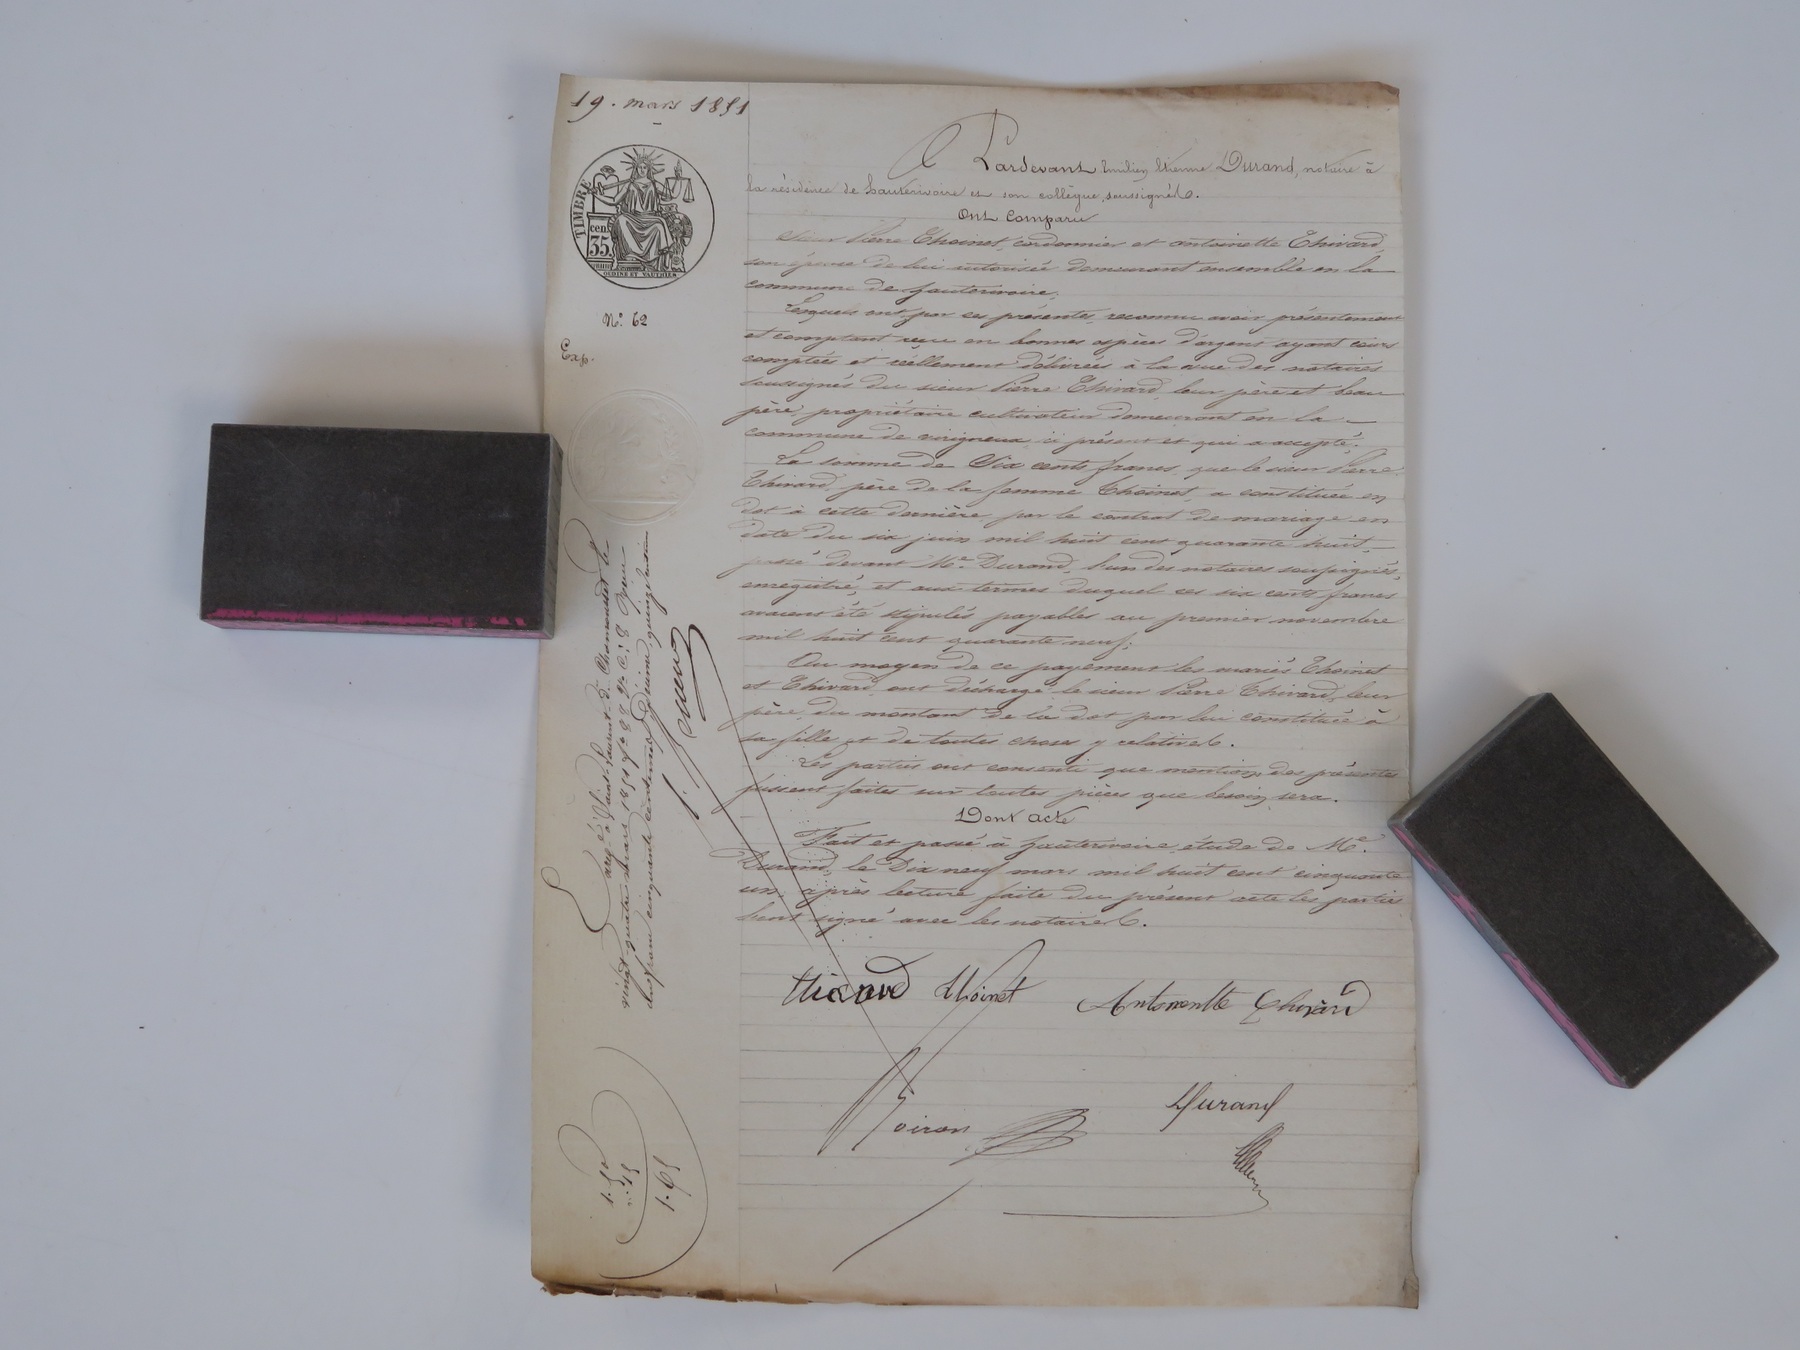 19. mars 1851
TIMBRE
35
cen.
OUDINE ET VAUTHIER
N.° 62
Exp.
Pardevant Emilien Etienne Durand, notaire à
la résidence de hauterivoire et son collègue, soussignés.
Ont Comparu
Sieur Pierre Thoinet, cordonnier et antoinette Thivard,
son épouse de lui autorisée demeurant ensemble en la
commune de hauterivoire;
Lesquels ont par ces présentes, reconnu avoir présentement
et comptant reçu en bonnes espèces d'argent ayant cours
comptées et réellement délivrées à la vue des notaires
soussignés du sieur Pierre Thivard, leur père et beau
père, propriétaire cultivateur demeurant en la
commune de virigneux, ci présent et qui a accepté;
La somme de Six cents francs, que le sieur Pierre
Thivard, père de la femme Thoinet, a constituée en
dot à cette dernière par le contrat de mariage en
date du six juin mil huit cent quarante huit,
passé devant Me. Durand, l'un des notaires soussignés,
enregistré, et aux termes duquel ces six cents francs
avaient été stipulés payables au premier novembre
mil huit cent quarante neuf;
Au moyen de ce payement les mariés Thoinet
et Thivard, ont déchargé le sieur Pierre Thivard, leur
père, du montant de la dot par lui constituée à
sa fille et de toutes choses y relatives.
Les parties ont consenti que mention des présentes
fussent faites sur toutes pièces que besoin sera.
Dont acte
Fait et passé à hauterivoire, étude de Me.
Durand, le Dix neuf mars mil huit cent cinquante
un, après lecture faite du présent acte les parties
l'ont signé avec les notaires.
thivard Thoinet Antoinentte Thivard
Durand
Noiron
Enreg.é à Saint-Laurent-de-Chamousset le
vingt-quatre mars 1851 f° 88 V° C. 8 Reçu
un franc cinquante centimes Décime quinze centimes
1.50
".15
1.65